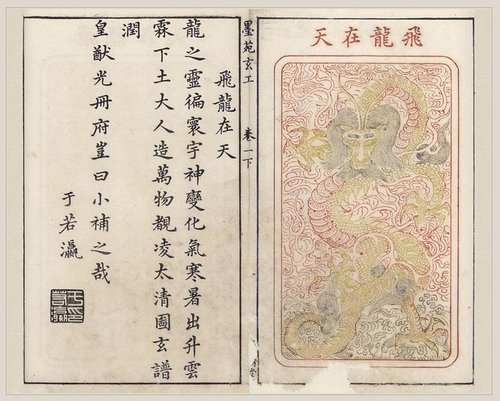 飛龍在天
墨苑玄工
卷一下
飛龍在天
龍之靈徧寰宇神變化氣寒暑出升雲
霖下土大人造萬物覩凌太清圖玄譜
潤
皇猷光冊府豈曰小補之哉
于若瀛